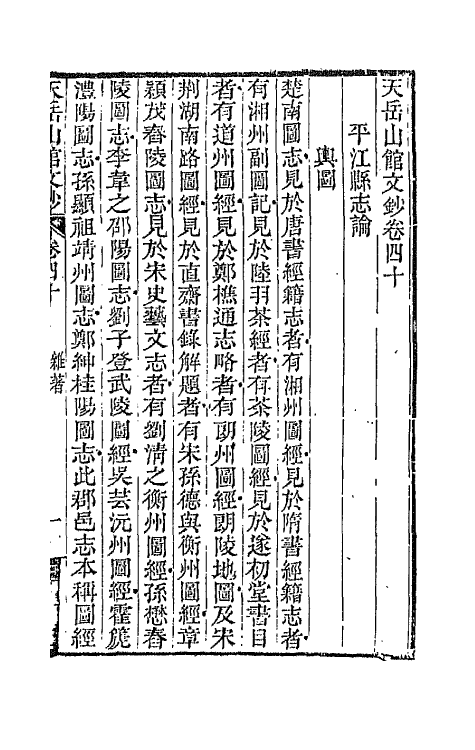 天岳山館文鈔卷四十
平江縣志論
輿圖
楚南圖志見於唐書經籍志者有湘州圖經見於隋書經籍志者
有湘州副圖記見於陸羽茶經者有茶陵圖經見於遂初堂書目
者有道州圖經見於鄭樵通志略者有朗州圖經朗陵地圖及宋
荆湖南路圖經見於直齋書錄解題者有朱孫德與衡州圖經章
穎茂舂陵圖志見於宋史藝文志者有劉清之衡州圖經孫懋舂
陵圖志李韋之邵陽圖志劉子登武陵圖經吳芸沅州圖經霍箎
澧陽圖志孫顯祖靖州圖志鄭紳桂陽圖志此郡邑志本稱圖經
天岳山館文鈔
卷四十
雜著
一